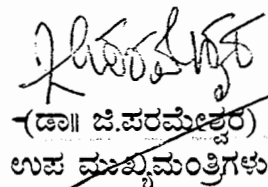 (ಡಾ॥ ಜಿ.ಪರಮೇಶ್ವರ)
ಉಪ ಮುಖ್ಯಮಂತ್ರಿಗಳು